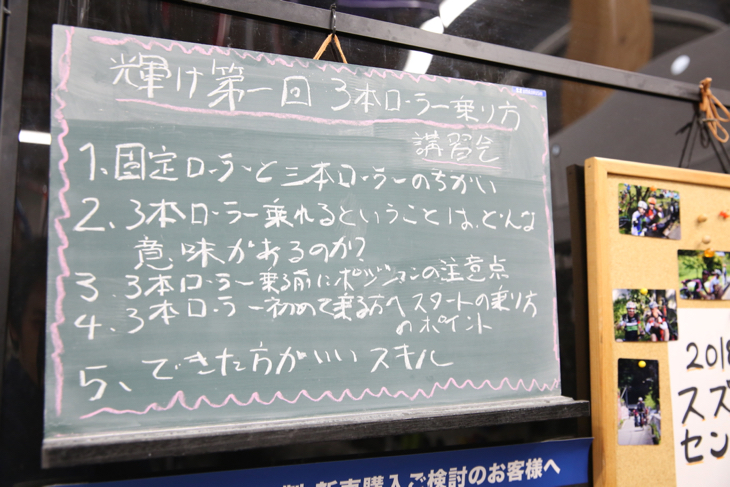 輝け第一回 3本ローラー乗り方
講習会
1、固定ローラーと三本ローラーのちがい
2、3本ローラー乗れるということは、どんな
意味があるのか?
3、3本ローラー乗る前にポジションの注意点
4、3本ローラー初めて乗る方へスタートの乗り方
のポイント
5、できた方がいいスキル
新車購入ご検討のお客様へ
2018
スズ
セン